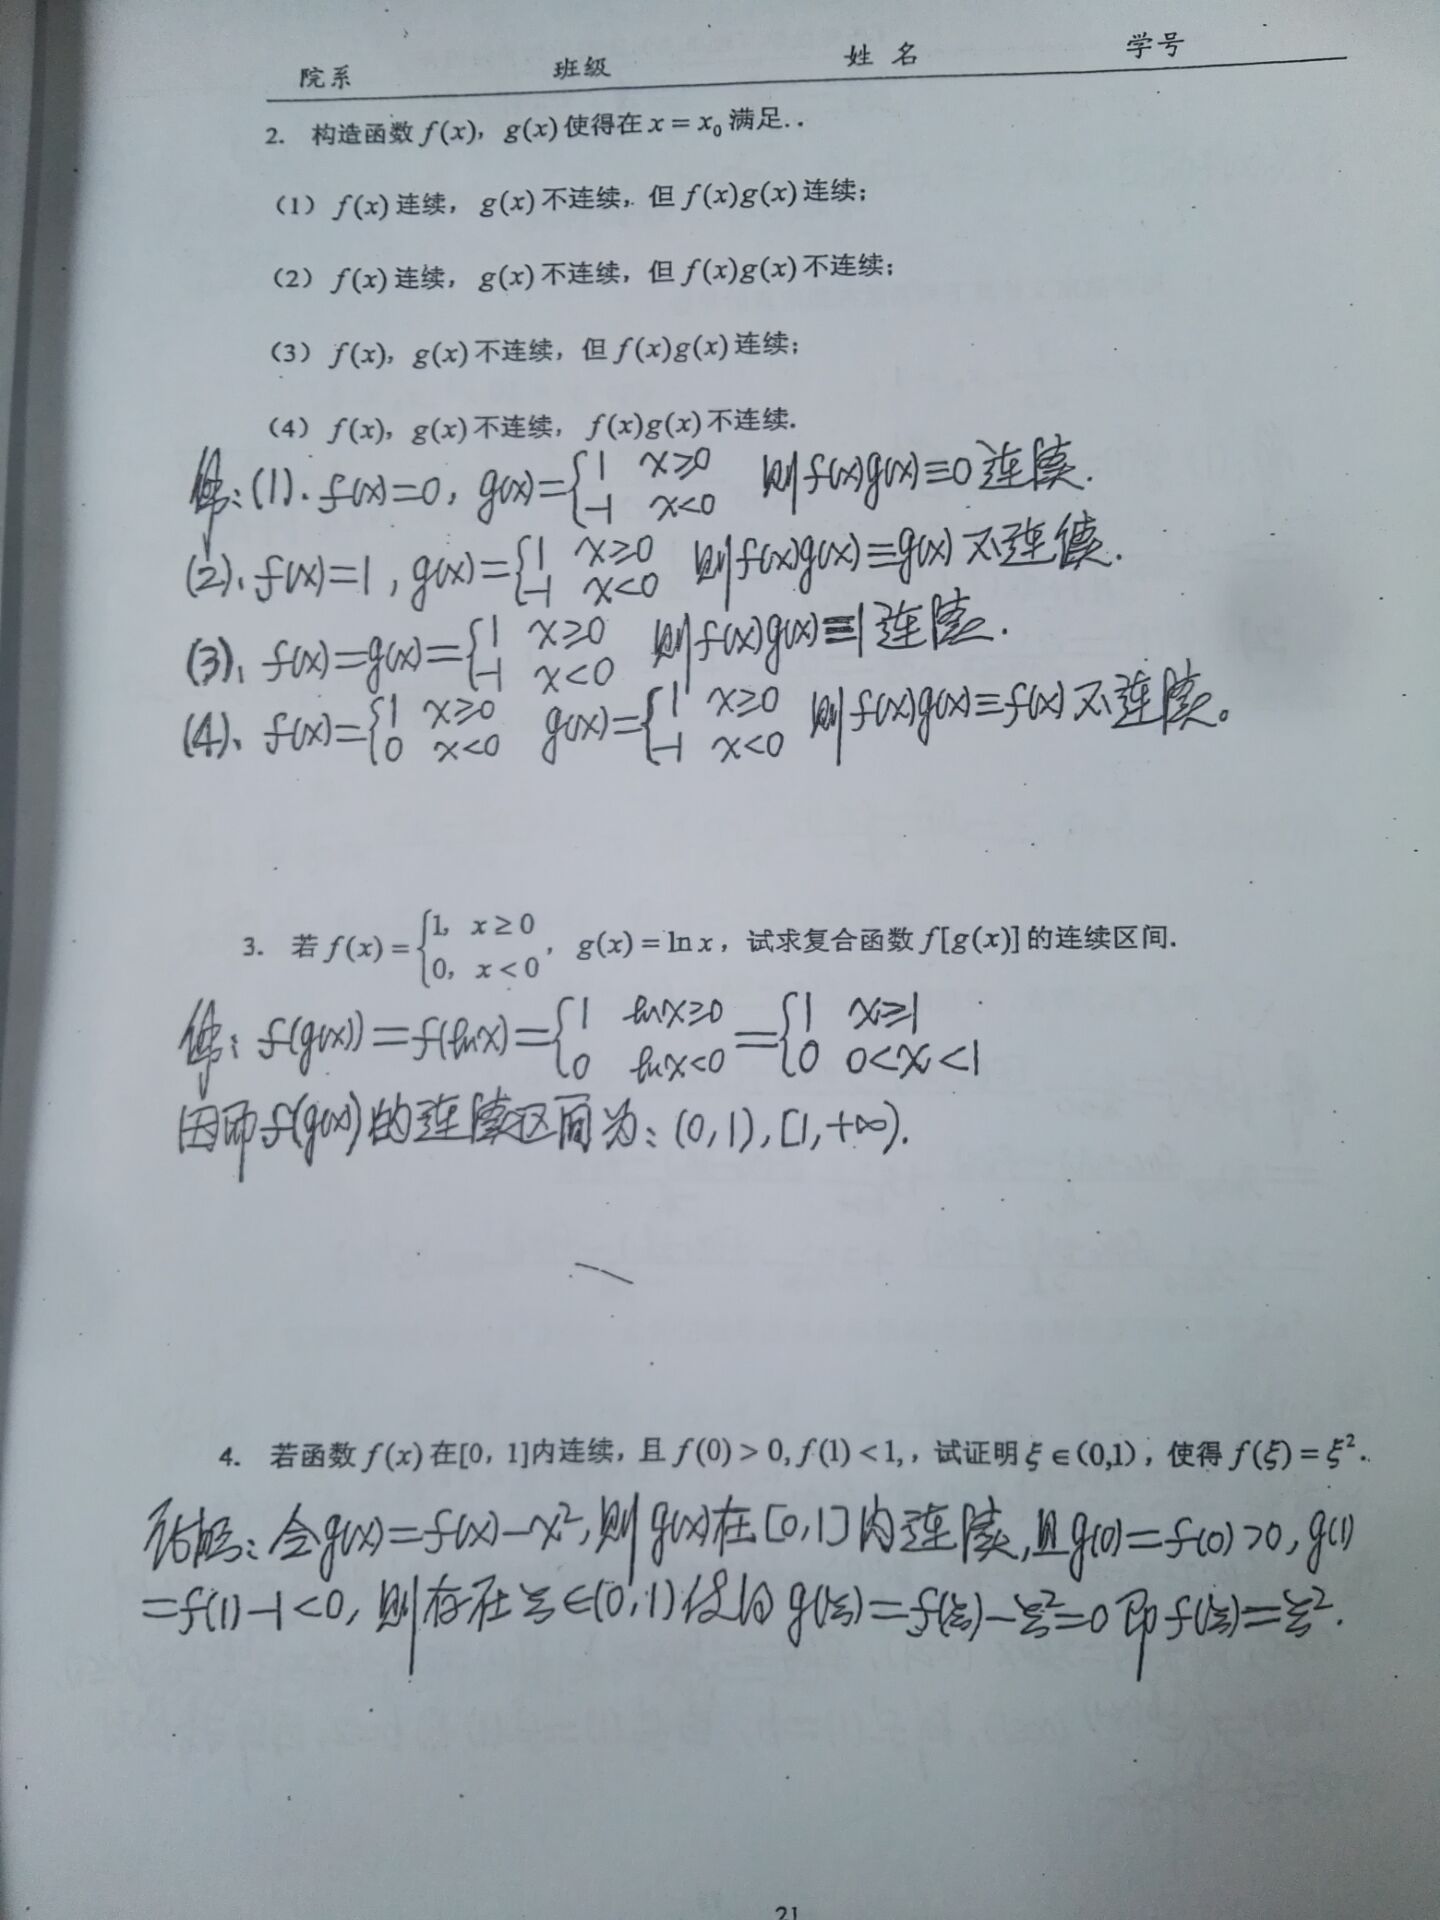 院系 班级 姓 名 学号
2. 构造函数 f(x), g(x) 使得在 x = x₀ 满足. .
(1) f(x) 连续, g(x) 不连续, 但 f(x)g(x) 连续;
(2) f(x) 连续, g(x) 不连续, 但 f(x)g(x) 不连续;
(3) f(x), g(x) 不连续, 但 f(x)g(x) 连续;
(4) f(x), g(x) 不连续, f(x)g(x) 不连续.
解: (1). f(x)=0, g(x)={1 x≥0 -1 x<0 则f(x)g(x)≡0 连续.
(2). f(x)=1, g(x)={1 x≥0 -1 x<0 则f(x)g(x)≡g(x) 不连续.
(3). f(x)=g(x)={1 x≥0 -1 x<0 则f(x)g(x)≡1连续.
(4). f(x)={1 x≥0 0 x<0 g(x)={1 x≥0 -1 x<0 则f(x)g(x)≡f(x) 不连续。
3. 若 f(x) = {1, x ≥ 0 0, x < 0, g(x) = ln x, 试求复合函数 f[g(x)] 的连续区间.
解: f(g(x))=f(lnx)={1 lnx≥0 0 lnx<0 ={1 x≥1 0 0<x<1
因而f(g(x))的连续区间为: (0,1), [1,+∞).
4. 若函数 f(x) 在[0, 1]内连续, 且 f(0) > 0, f(1) < 1, , 试证明 ξ ∈ (0,1), 使得 f(ξ) = ξ².
证明: 令g(x)=f(x)-x², 则g(x)在[0,1]内连续, 且g(0)=f(0)>0, g(1)
=f(1)-1<0, 则存在ξ∈(0,1)使得g(ξ)=f(ξ)-ξ²=0 即f(ξ)=ξ².
21